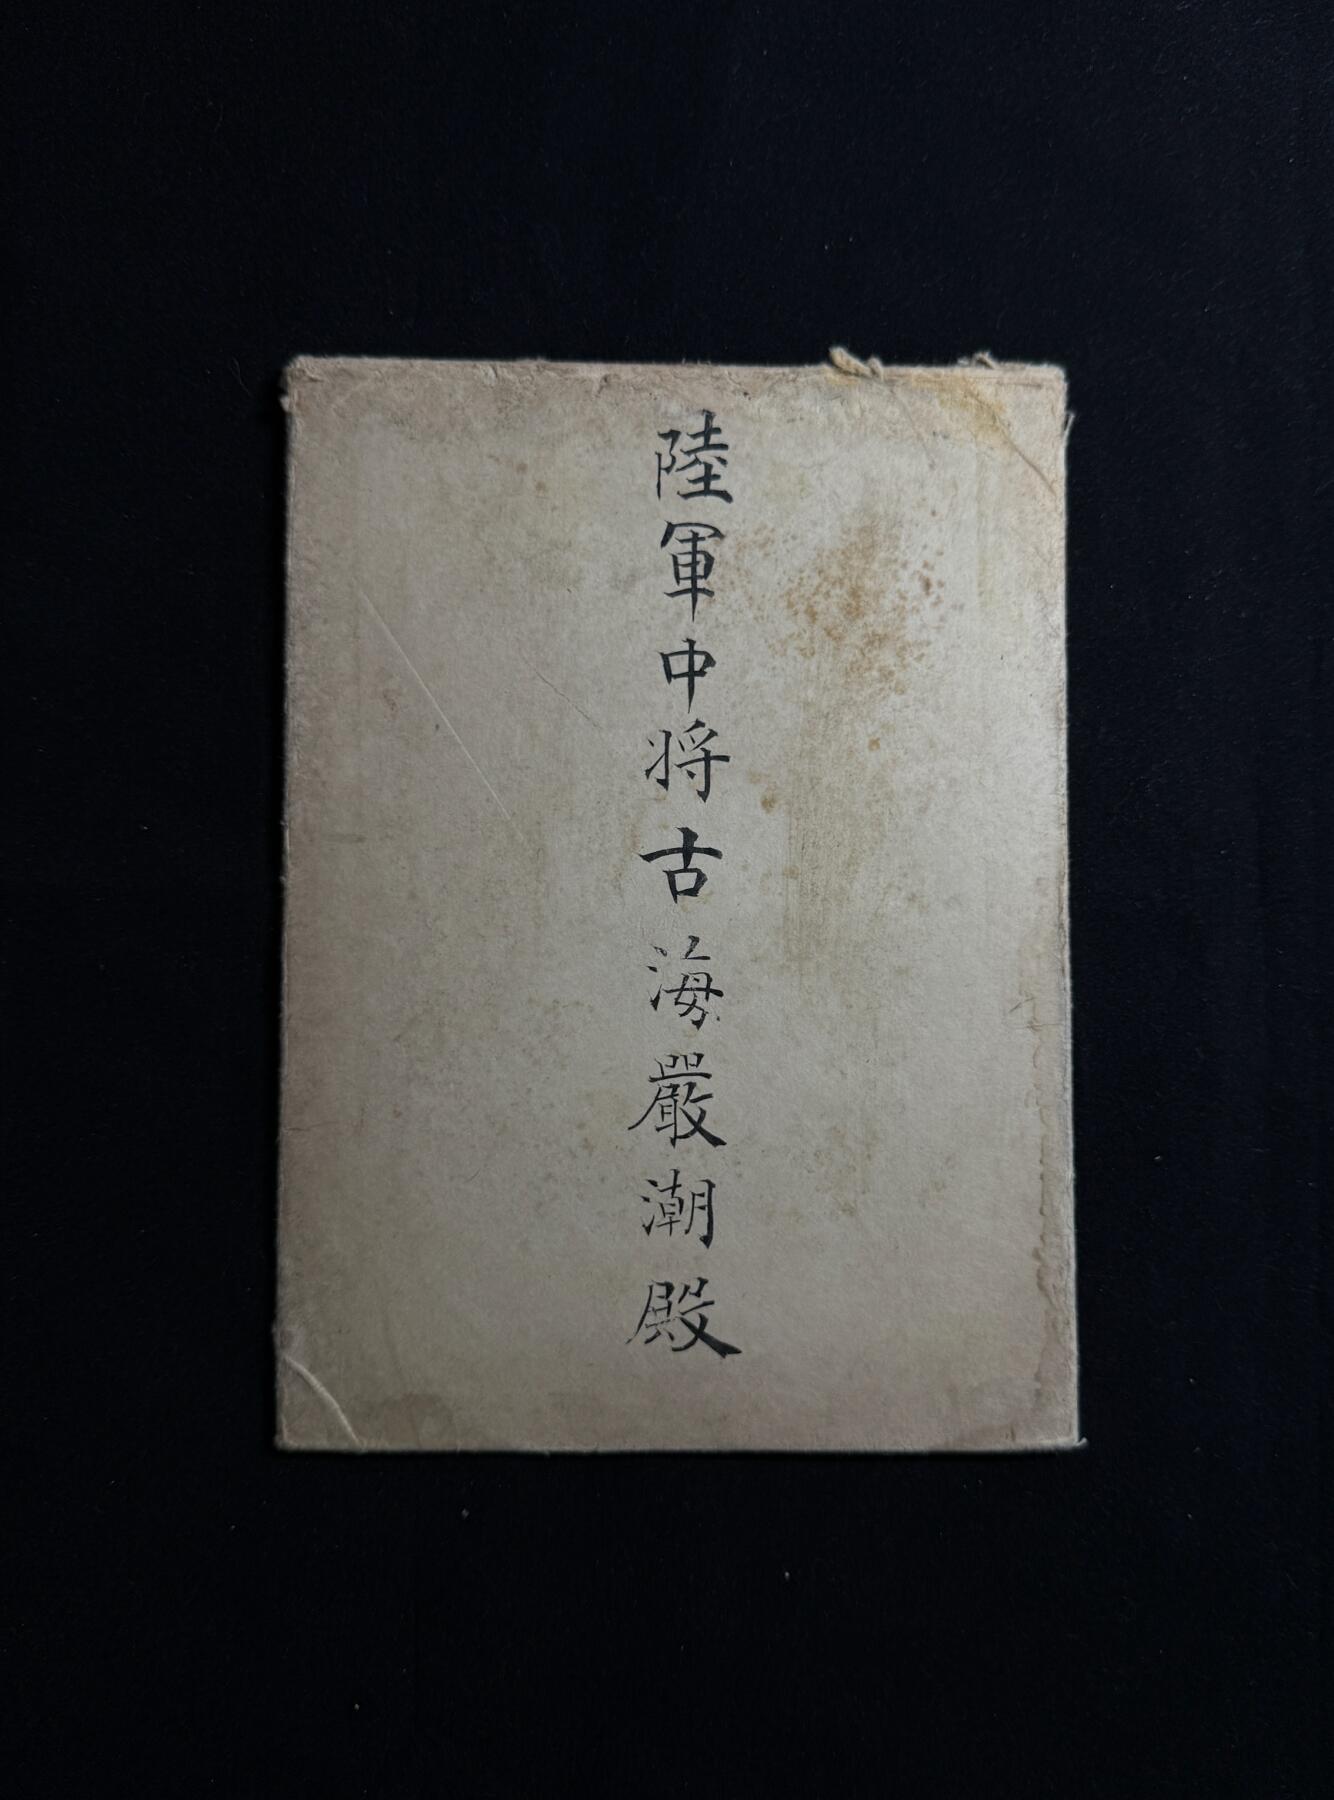 陸軍中将古海嚴潮殿